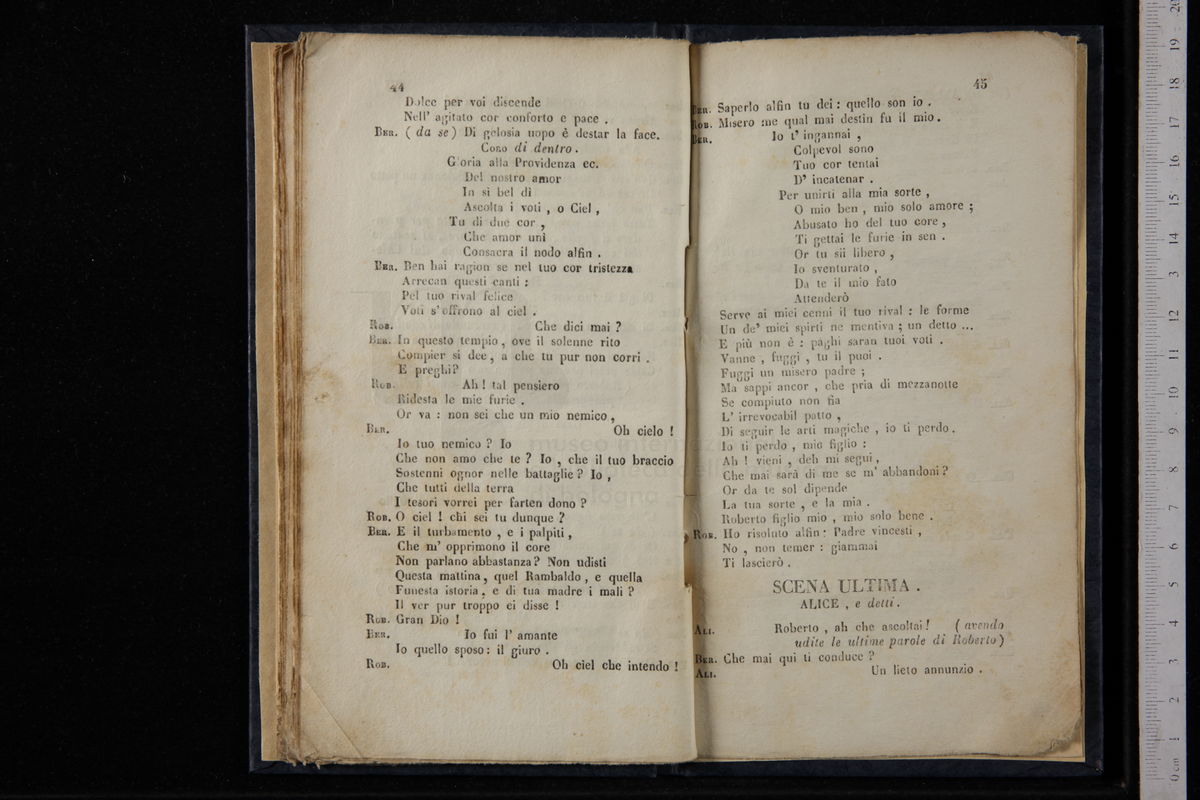 44
Dolce per voi discende
Nell' agitato cor conforto e pace .
BER. ( da se ) Di gelosia uopo è destar la face.
CORO di dentro .
Gloria alla Providenza ec.
Del nostro amor
In si bel dì
Ascolta i voti , o Ciel ,
Tu di due cor ,
Che amor unì
Consacra il nodo alfin .
BER. Ben hai ragion se nel tuo cor tristezza
Arrecan questi canti :
Pel tuo rival felice
Voti s' offrono al ciel .
ROB. Che dici mai ?
BER. In questo tempio , ove il solenne rito
Compier si dee , a che tu pur non corri .
E preghi?
ROB. Ah ! tal pensiero
Ridesta le mie furie .
Or va : non sei che un mio nemico ,
BER. Oh cielo !
Io tuo nemico ? Io
Che non amo che te ? Io , che il tuo braccio
Sostenni ognor nelle battaglie ? Io ,
Che tutti della terra
I tesori vorrei per farten dono ?
ROB. O ciel ! chi sei tu dunque ?
BER. E il turbamento , e i palpiti ,
Che m' opprimono il core
Non parlano abbastanza ? Non udisti
Questa mattina , quel Rambaldo , e quella
Funesta istoria , e di tua madre i mali ?
Il ver pur troppo ei disse !
ROB. Gran Dio !
BER. Io fui l' amante
Io quello sposo : il giuro .
ROB. Oh ciel che intendo !
45
BER. Saperlo alfin tu dei : quello son io .
ROB. Misero me qual mai destin fu il mio .
BER. Io t' ingannai ,
Colpevol sono
Tuo cor tentai
D' incatenar .
Per unirti alla mia sorte ,
O mio ben , mio solo amore ;
Abusato ho del tuo core ,
Ti gettai le furie in sen .
Or tu sii libero ,
Io sventurato ,
Da te il mio fato
Attenderò
Serve ai miei cenni il tuo rival : le forme
Un de' miei spirti ne mentiva ; un detto ...
E più non è : paghi saran tuoi voti .
Vanne , fuggi , tu il puoi .
Fuggi un misero padre ;
Ma sappi ancor , che pria di mezzanotte
Se compiuto non fia
L' irrevocabil patto ,
Di seguir le arti magiche , io ti perdo .
Io ti perdo , mio figlio :
Ah ! vieni , deh mi segui ,
Che mai sarà di me se m' abbandoni ?
Or da te sol dipende
La tua sorte , e la mia .
Roberto figlio mio , mio solo bene .
ROB. Ho risoluto alfin : Padre vincesti ,
No , non temer : giammai
Ti lascierò .
SCENA ULTIMA .
ALICE , e detti .
ALI. Roberto , ah che ascoltai ! ( avendo
udite le ultime parole di Roberto )
BER. Che mai qui ti conduce ?
ALI. Un lieto annunzio .